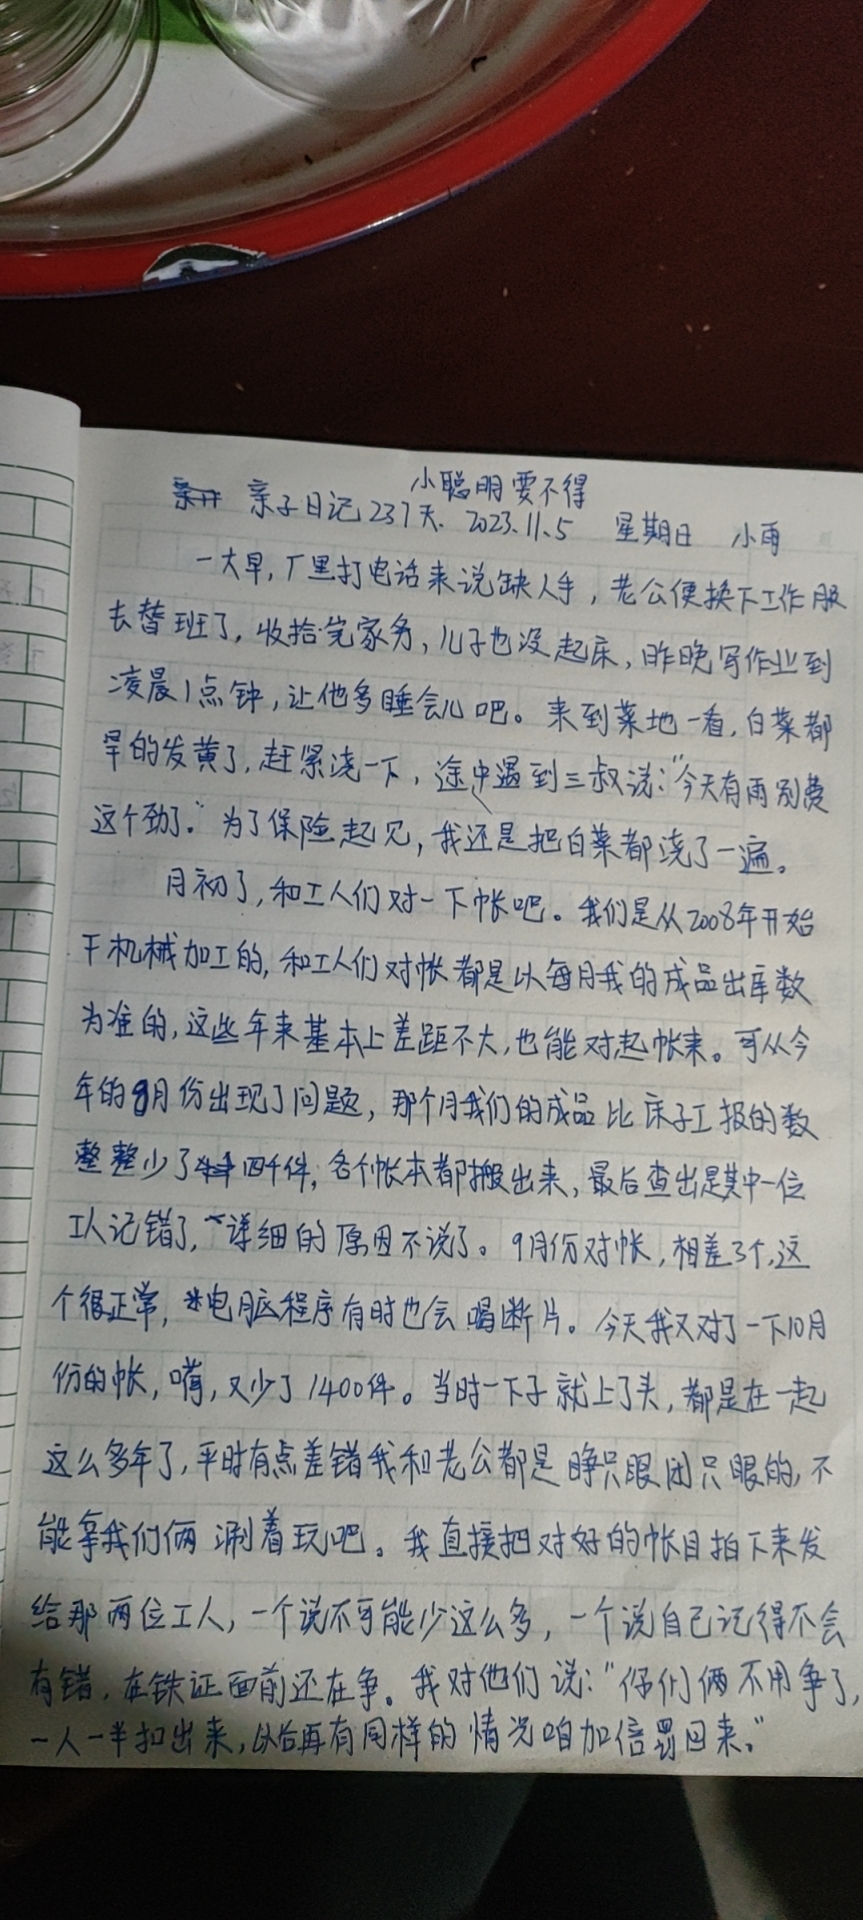 小聪明要不得
亲子日记237天. 2023.11.5 星期日 小雨
一大早,厂里打电话来说缺人手,老公便换下工作服
去替班了,收拾完家务,儿子也没起床,昨晚写作业到
凌晨1点钟,让他多睡会儿吧。来到菜地一看,白菜都
旱的发黄了,赶紧浇一下,途中遇到三叔说:“今天有雨别费
这个劲了。”为了保险起见,我还是把白菜都浇了一遍。
月初了,和工人们对一下帐吧。我们是从2008年开始
干机械加工的,和工人们对帐都是以每月我的成品出库数
为准的,这些年来基本上差距不大,也能对起帐来。可从今
年的8月份出现了问题,那个月我们的成品比床子工报的数
整整少了四千件,各个帐本都搬出来,最后查出是其中一位
工人记错了,详细的原因不说了。9月份对帐,相差3个,这
个很正常,电脑程序有时也会喝断片。今天我又对了一下10月
份的帐,嗬,又少了1400件。当时一下子就上了头,都是在一起
这么多年了,平时有点差错我和老公都是睁只眼闭只眼的,不
能拿我们俩涮着玩吧。我直接把对好的帐目拍下来发
给那两位工人,一个说不可能少这么多,一个说自己记得不会
有错,在铁证面前还在争。我对他们说:“你们俩不用争了,
一人一半扣出来,以后再有同样的情况咱加倍罚回来。”